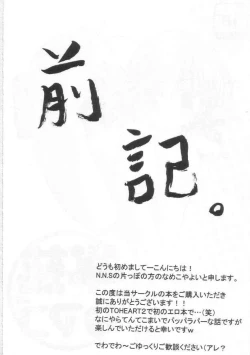 前
記。
どうも初めましてーこんにちは！
N.N.Sの片っぽの方のなめこやよいと申します。
この度は当サークルの本をご購入いただき
誠にありがとうございます！！
初めてのTOHEART2で初のエロ本で…(笑)
なにやらてんてこまいでパッパラパーな話ですが
楽しんでいただけると幸いですｗ
でわでわ〜ごゆっくりご歓談ください(アレ？